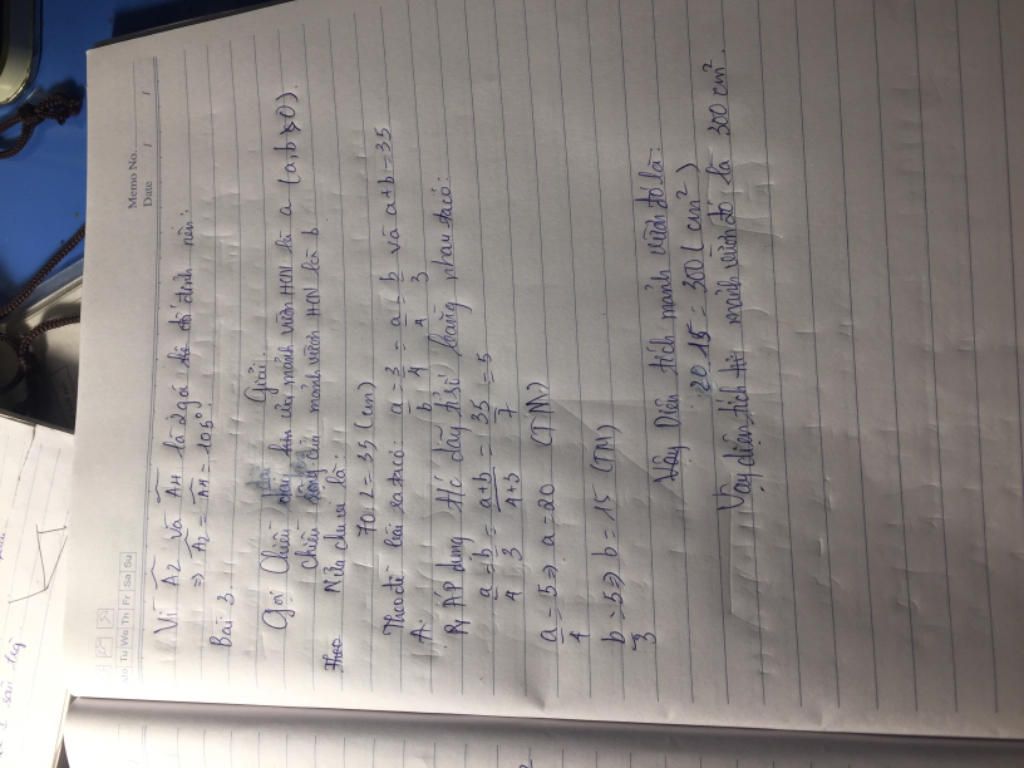 Memo No.
Date / /
Mo Tu We Th Fr Sa Su
Vì A2 và A4 là 2 góc đối đỉnh nên:
=> A2 = A4 = 105°
Bài 3.
Giải.
Gọi chiều dài mảnh vườn HCN là a (a, b > 0).
chiều rộng của mảnh vườn HCN là b
Nửa chu vi là:
Theo
70 : 2 = 35 (cm)
Theo đề bài ra ta có: a/b = 4/3 => a/4 = b/3 và a + b = 35
A.
Áp dụng t/c dãy tỉ số bằng nhau ta có:
a/4 = b/3 = a+b/4+3 = 35/7 = 5
a/4 = 5 => a = 20 (TM)
b/3 = 5 => b = 15 (TM)
Vậy Diện tích mảnh vườn đó là:
20.15 = 300 (cm²)
Vậy diện tích mảnh vườn đó là 300 cm².